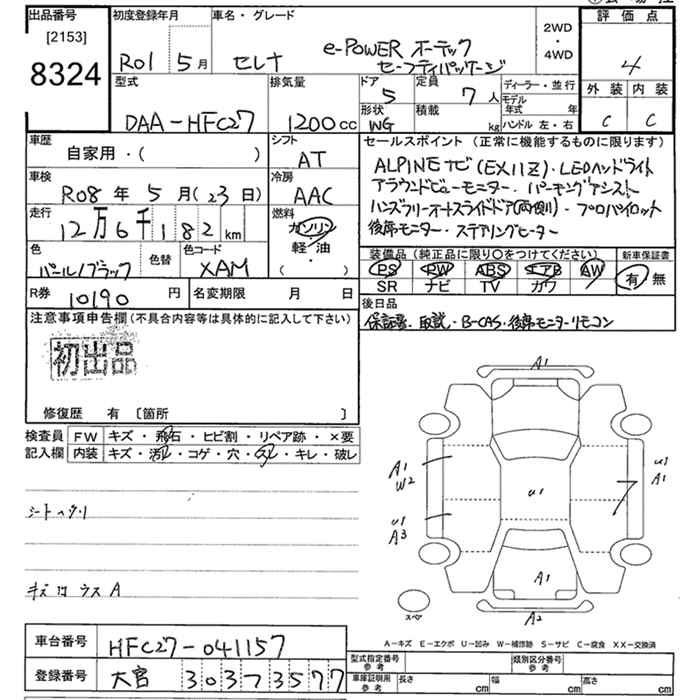 出品番号
[2153]
8324
初度登録年月
R01 5月
車名・グレード
セレナ e-POWER オーテック
セーフティパッケージ
2WD
・
4WD
評価点
4
外装 内装
C C
型式
DAA-HFC27
排気量
1200cc
ドア
5
定員
7人
形状
WG
積載
kg
ディーラー・並行
モデル
年式 年
ハンドル 左・右
車歴
自家用・( )
シフト
AT
車検
R08年5月(23日)
冷房
AAC
走行
12万6千182km
燃料
ガソリン
軽・油
・
( )
色
パール/ブラック
色替
色コード
XAM
R券
10190円
名変期限 月 日
セールスポイント(正常に機能するものに限ります)
ALPINEナビ(EX11Z)・LEDヘッドライト
アラウンドビューモニター・パーキングアシスト
ハンズフリーオートスライドドア(両側)・プロパイロット
後席モニター・ステアリングヒーター
装備品(純正品に限り○をつけてください)
PS PW ABS エアB AW
SR ナビ TV カワ
新車保証書
有・無
後日品
保証書・取説・B-CAS・後席モニターリモコン
注意事項申告欄(不具合内容等は具体的に記入して下さい)
初出品
修復歴 有 〔箇所 〕
検査員
記入欄
FW キズ・飛石・ヒビ割・リペア跡・×要
内装 キズ・汚れ・コゲ・穴・スレ・キレ・破レ
シートヘタリ
キズ凹ウスA
A1
A1
W2
u1
A3
u1
u1
A1
7
A1
A2
スペア
A-キズ E-エクボ U-凹み W-補修跡 S-サビ C-腐食 XX-交換済
車台番号
HFC27-041157
登録番号
大宮 303 ス 3577
型式指定番号
参考
類別区分番号
参考
車庫証明用
参考
長さ cm 幅 cm 高さ cm